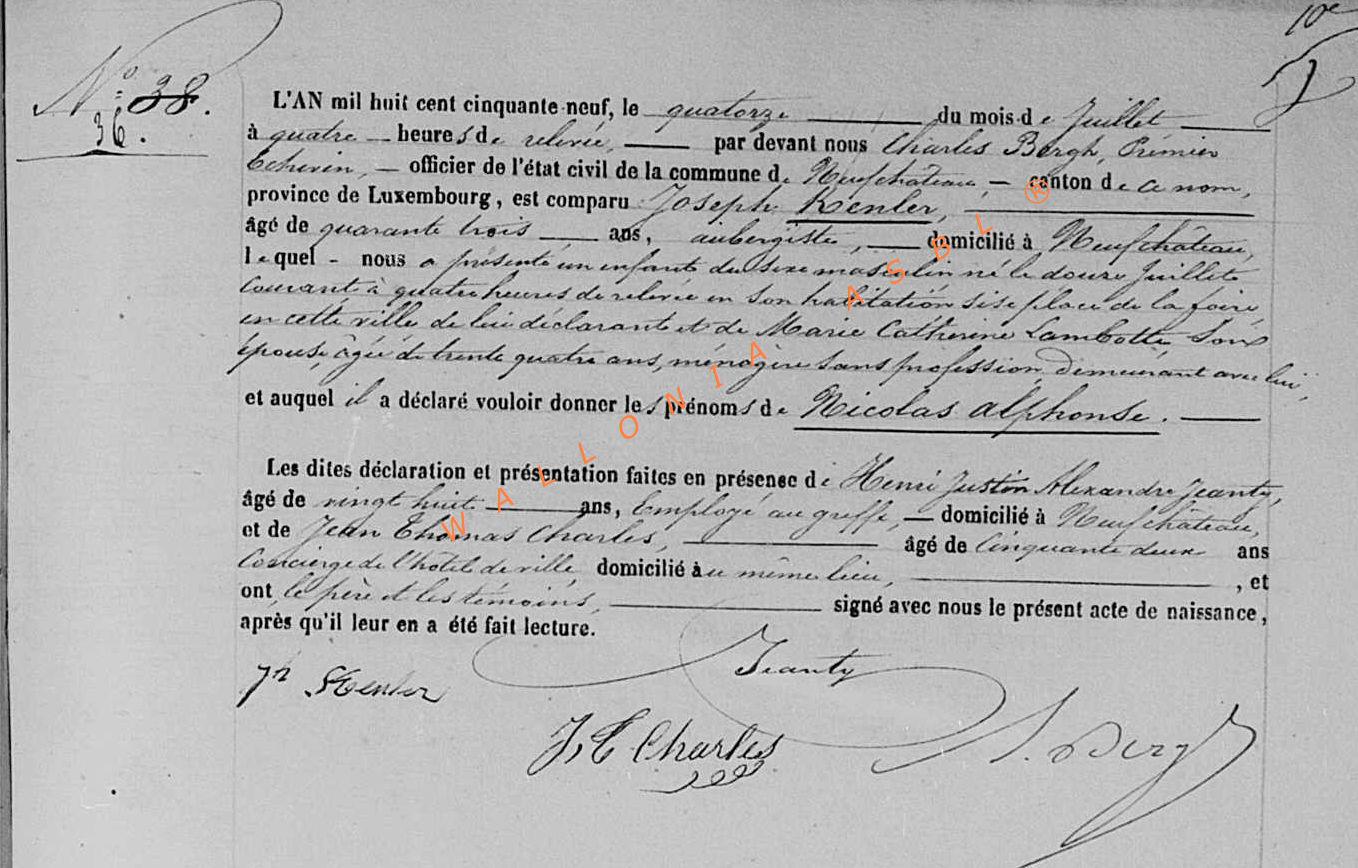 10e
N° 38.
36.
L'AN mil huit cent cinquante-neuf, le quatorze du mois de Juillet
à quatre heures de relevée, par devant nous Charles Bergh, Premier
Echevin, officier de l'état civil de la commune de Neufchâteau, canton de ce nom,
province de Luxembourg, est comparu Joseph Kenler,
âgé de quarante trois ans, aubergiste, domicilié à Neufchâteau,
lequel nous a présenté un enfant du sexe masculin né le douze Juillet
courant à quatre heures de relevée en son habitation sise place de la foire
en cette ville de lui déclarant et de Marie Catherine Lambotte son
épouse, âgée de trente quatre ans, ménagère sans profession demeurant avec lui,
et auquel il a déclaré vouloir donner les prénoms de Nicolas Alphonse.
Les dites déclaration et présentation faites en présence de Henri Justin Alexandre Jeanty,
âgé de vingt huit ans, Employé au greffe, domicilié à Neufchâteau,
et de Jean Thomas Charles, âgé de cinquante deux ans
Concierge de l'hôtel de ville domicilié au même lieu, , et
ont, le père et les témoins, signé avec nous le présent acte de naissance,
après qu'il leur en a été fait lecture.
Jh Kenler
Jeanty
J. T Charles
Bergh
WALLONIA ASBL ®